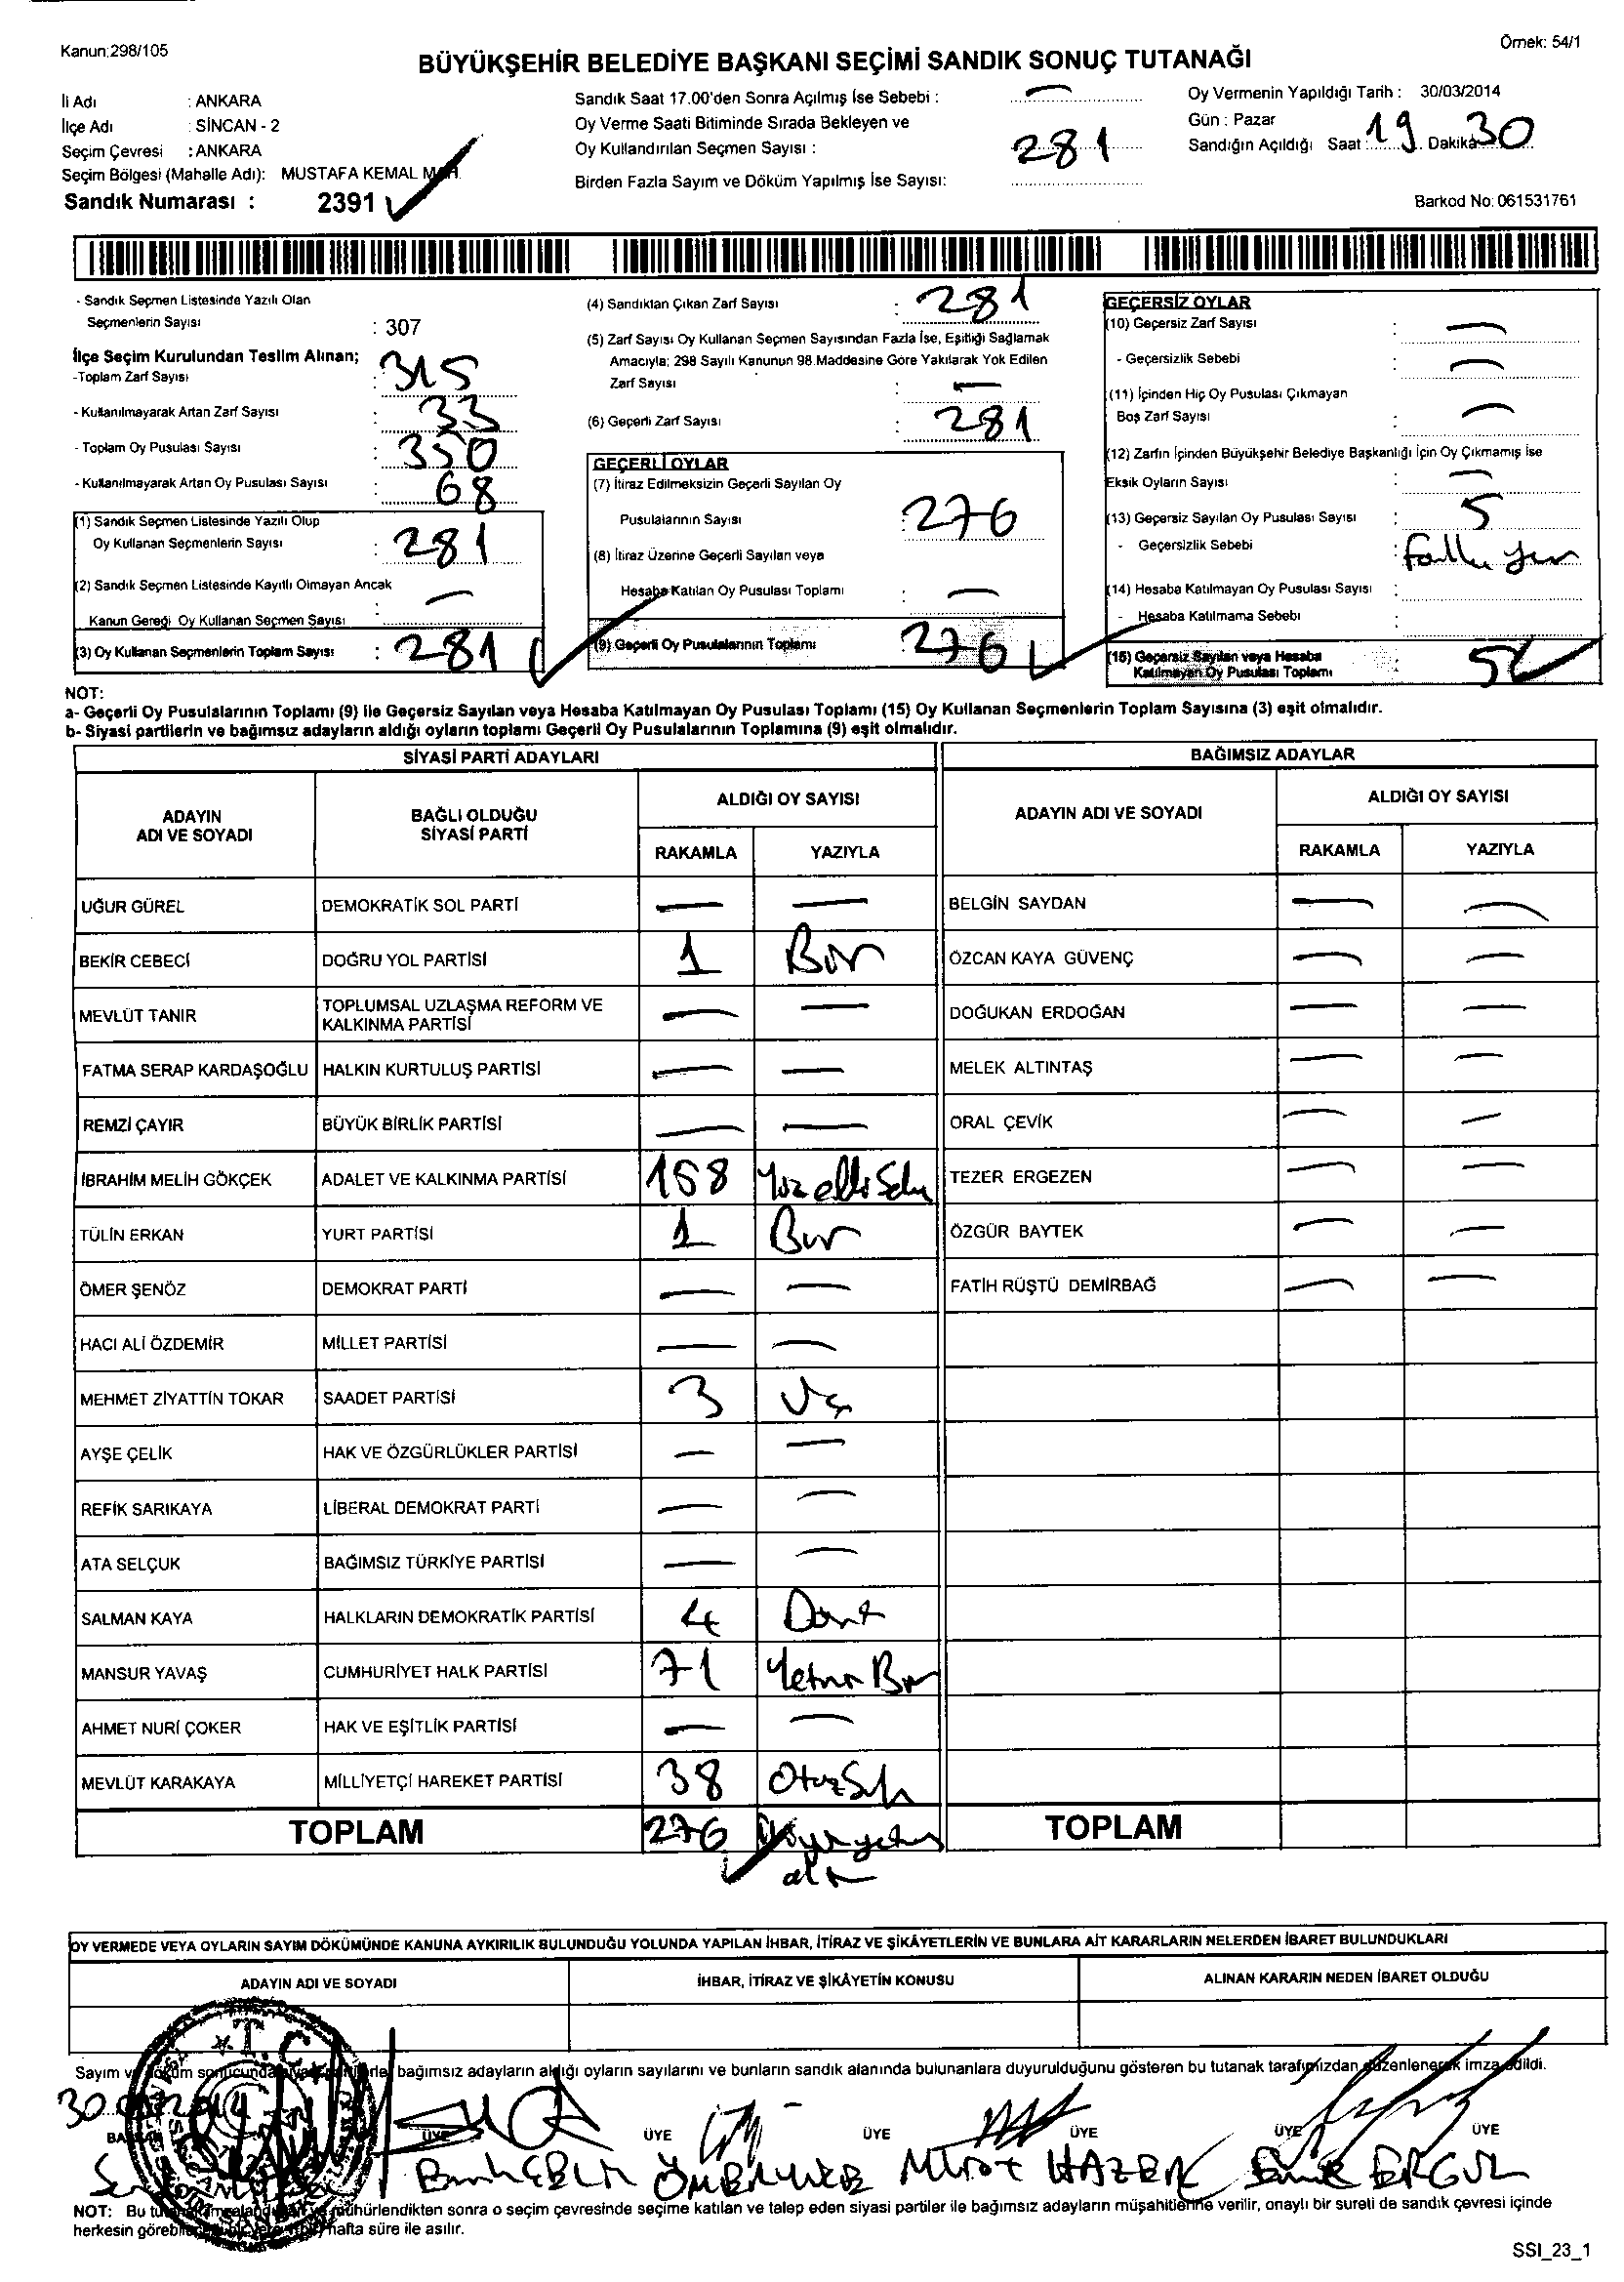 Kanun:298/105
Örnek: 54/1
BÜYÜKŞEHİR BELEDİYE BAŞKANI SEÇİMİ SANDIK SONUÇ TUTANAĞI
İli Adı : ANKARA
İlçe Adı : SİNCAN - 2
Seçim Çevresi : ANKARA
Seçim Bölgesi (Mahalle Adı): MUSTAFA KEMAL MAH.
Sandık Numarası : 2391
Sandık Saat 17.00'den Sonra Açılmış İse Sebebi : —
Oy Verme Saati Bitiminde Sırada Bekleyen ve
Oy Kullandırılan Seçmen Sayısı : 281
Birden Fazla Sayım ve Döküm Yapılmış İse Sayısı:
Oy Vermenin Yapıldığı Tarih : 30/03/2014
Gün : Pazar
Sandığın Açıldığı Saat 19 Dakika 30
Barkod No: 061531761
- Sandık Seçmen Listesinde Yazılı Olan
Seçmenlerin Sayısı : 307
İlçe Seçim Kurulundan Teslim Alınan;
-Toplam Zarf Sayısı : 315
- Kullanılmayarak Artan Zarf Sayısı : 33
- Toplam Oy Pusulası Sayısı : 350
- Kullanılmayarak Artan Oy Pusulası Sayısı : 68
(1) Sandık Seçmen Listesinde Yazılı Olup
Oy Kullanan Seçmenlerin Sayısı : 281
(2) Sandık Seçmen Listesinde Kayıtlı Olmayan Ancak
Kanun Gereği Oy Kullanan Seçmen Sayısı : —
(3) Oy Kullanan Seçmenlerin Toplam Sayısı : 281
(4) Sandıktan Çıkan Zarf Sayısı : 281
(5) Zarf Sayısı Oy Kullanan Seçmen Sayısından Fazla İse, Eşitliği Sağlamak
Amacıyla; 298 Sayılı Kanunun 98.Maddesine Göre Yakılarak Yok Edilen
Zarf Sayısı : —
(6) Geçerli Zarf Sayısı : 281
GEÇERLİ OYLAR
(7) İtiraz Edilmeksizin Geçerli Sayılan Oy
Pusulalarının Sayısı : 276
(8) İtiraz Üzerine Geçerli Sayılan veya
Hesaba Katılan Oy Pusulası Toplamı : —
(9) Geçerli Oy Pusulalarının Toplamı 276
GEÇERSİZ OYLAR
(10) Geçersiz Zarf Sayısı : —
- Geçersizlik Sebebi : —
(11) İçinden Hiç Oy Pusulası Çıkmayan
Boş Zarf Sayısı : —
(12) Zarfın İçinden Büyükşehir Belediye Başkanlığı İçin Oy Çıkmamış İse
Eksik Oyların Sayısı : —
(13) Geçersiz Sayılan Oy Pusulası Sayısı : 5
- Geçersizlik Sebebi :
(14) Hesaba Katılmayan Oy Pusulası Sayısı :
- Hesaba Katılmama Sebebi :
(15) Geçersiz Sayılan veya Hesaba
Katılmayan Oy Pusulası Toplamı : 5
NOT:
a- Geçerli Oy Pusulalarının Toplamı (9) ile Geçersiz Sayılan veya Hesaba Katılmayan Oy Pusulası Toplamı (15) Oy Kullanan Seçmenlerin Toplam Sayısına (3) eşit olmalıdır.
b- Siyasi partilerin ve bağımsız adayların aldığı oyların toplamı Geçerli Oy Pusulalarının Toplamına (9) eşit olmalıdır.
SİYASİ PARTİ ADAYLARI
ADAYIN ADI VE SOYADI BAĞLI OLDUĞU SİYASİ PARTİ ALDIĞI OY SAYISI
RAKAMLA YAZIYLA
UĞUR GÜREL DEMOKRATİK SOL PARTİ — —
BEKİR CEBECİ DOĞRU YOL PARTİSİ 1 Bir
MEVLÜT TANIR TOPLUMSAL UZLAŞMA REFORM VE KALKINMA PARTİSİ — —
FATMA SERAP KARDAŞOĞLU HALKIN KURTULUŞ PARTİSİ — —
REMZİ ÇAYIR BÜYÜK BİRLİK PARTİSİ — —
İBRAHİM MELİH GÖKÇEK ADALET VE KALKINMA PARTİSİ 158 Yüz elli Sekiz
TÜLİN ERKAN YURT PARTİSİ 1 Bir
ÖMER ŞENÖZ DEMOKRAT PARTİ — —
HACI ALİ ÖZDEMİR MİLLET PARTİSİ — —
MEHMET ZİYATTİN TOKAR SAADET PARTİSİ 3 Üç
AYŞE ÇELİK HAK VE ÖZGÜRLÜKLER PARTİSİ — —
REFİK SARIKAYA LİBERAL DEMOKRAT PARTİ — —
ATA SELÇUK BAĞIMSIZ TÜRKİYE PARTİSİ — —
SALMAN KAYA HALKLARIN DEMOKRATİK PARTİSİ 4 Dört
MANSUR YAVAŞ CUMHURİYET HALK PARTİSİ 71 Yetmiş Bir
AHMET NURİ ÇOKER HAK VE EŞİTLİK PARTİSİ — —
MEVLÜT KARAKAYA MİLLİYETÇİ HAREKET PARTİSİ 38 Otuz Sekiz
TOPLAM 276 İkiyüz yetmiş altı
BAĞIMSIZ ADAYLAR
ADAYIN ADI VE SOYADI ALDIĞI OY SAYISI
RAKAMLA YAZIYLA
BELGİN SAYDAN — —
ÖZCAN KAYA GÜVENÇ — —
DOĞUKAN ERDOĞAN — —
MELEK ALTINTAŞ — —
ORAL ÇEVİK — —
TEZER ERGEZEN — —
ÖZGÜR BAYTEK — —
FATİH RÜŞTÜ DEMİRBAĞ — —
TOPLAM
OY VERMEDE VEYA OYLARIN SAYIM DÖKÜMÜNDE KANUNA AYKIRILIK BULUNDUĞU YOLUNDA YAPILAN İHBAR, İTİRAZ VE ŞİKÂYETLERİN VE BUNLARA AİT KARARLARIN NELERDEN İBARET BULUNDUKLARI
ADAYIN ADI VE SOYADI İHBAR, İTİRAZ VE ŞİKÂYETİN KONUSU ALINAN KARARIN NEDEN İBARET OLDUĞU
Sayım ve döküm sonucunda bağımsız adayların aldığı oyların sayılarını ve bunların sandık alanında bulunanlara duyurulduğunu gösteren bu tutanak tarafımızdan düzenlenerek imza edildi.
BAŞKAN ÜYE ÜYE ÜYE ÜYE ÜYE ÜYE
Murat HAZER ERGÜL
NOT: Bu mühürlendikten sonra o seçim çevresinde seçime katılan ve talep eden siyasi partiler ile bağımsız adayların müşahitlerine verilir, onaylı bir sureti de sandık çevresi içinde
herkesin görebileceği hafta süre ile asılır.
SSI_23_1